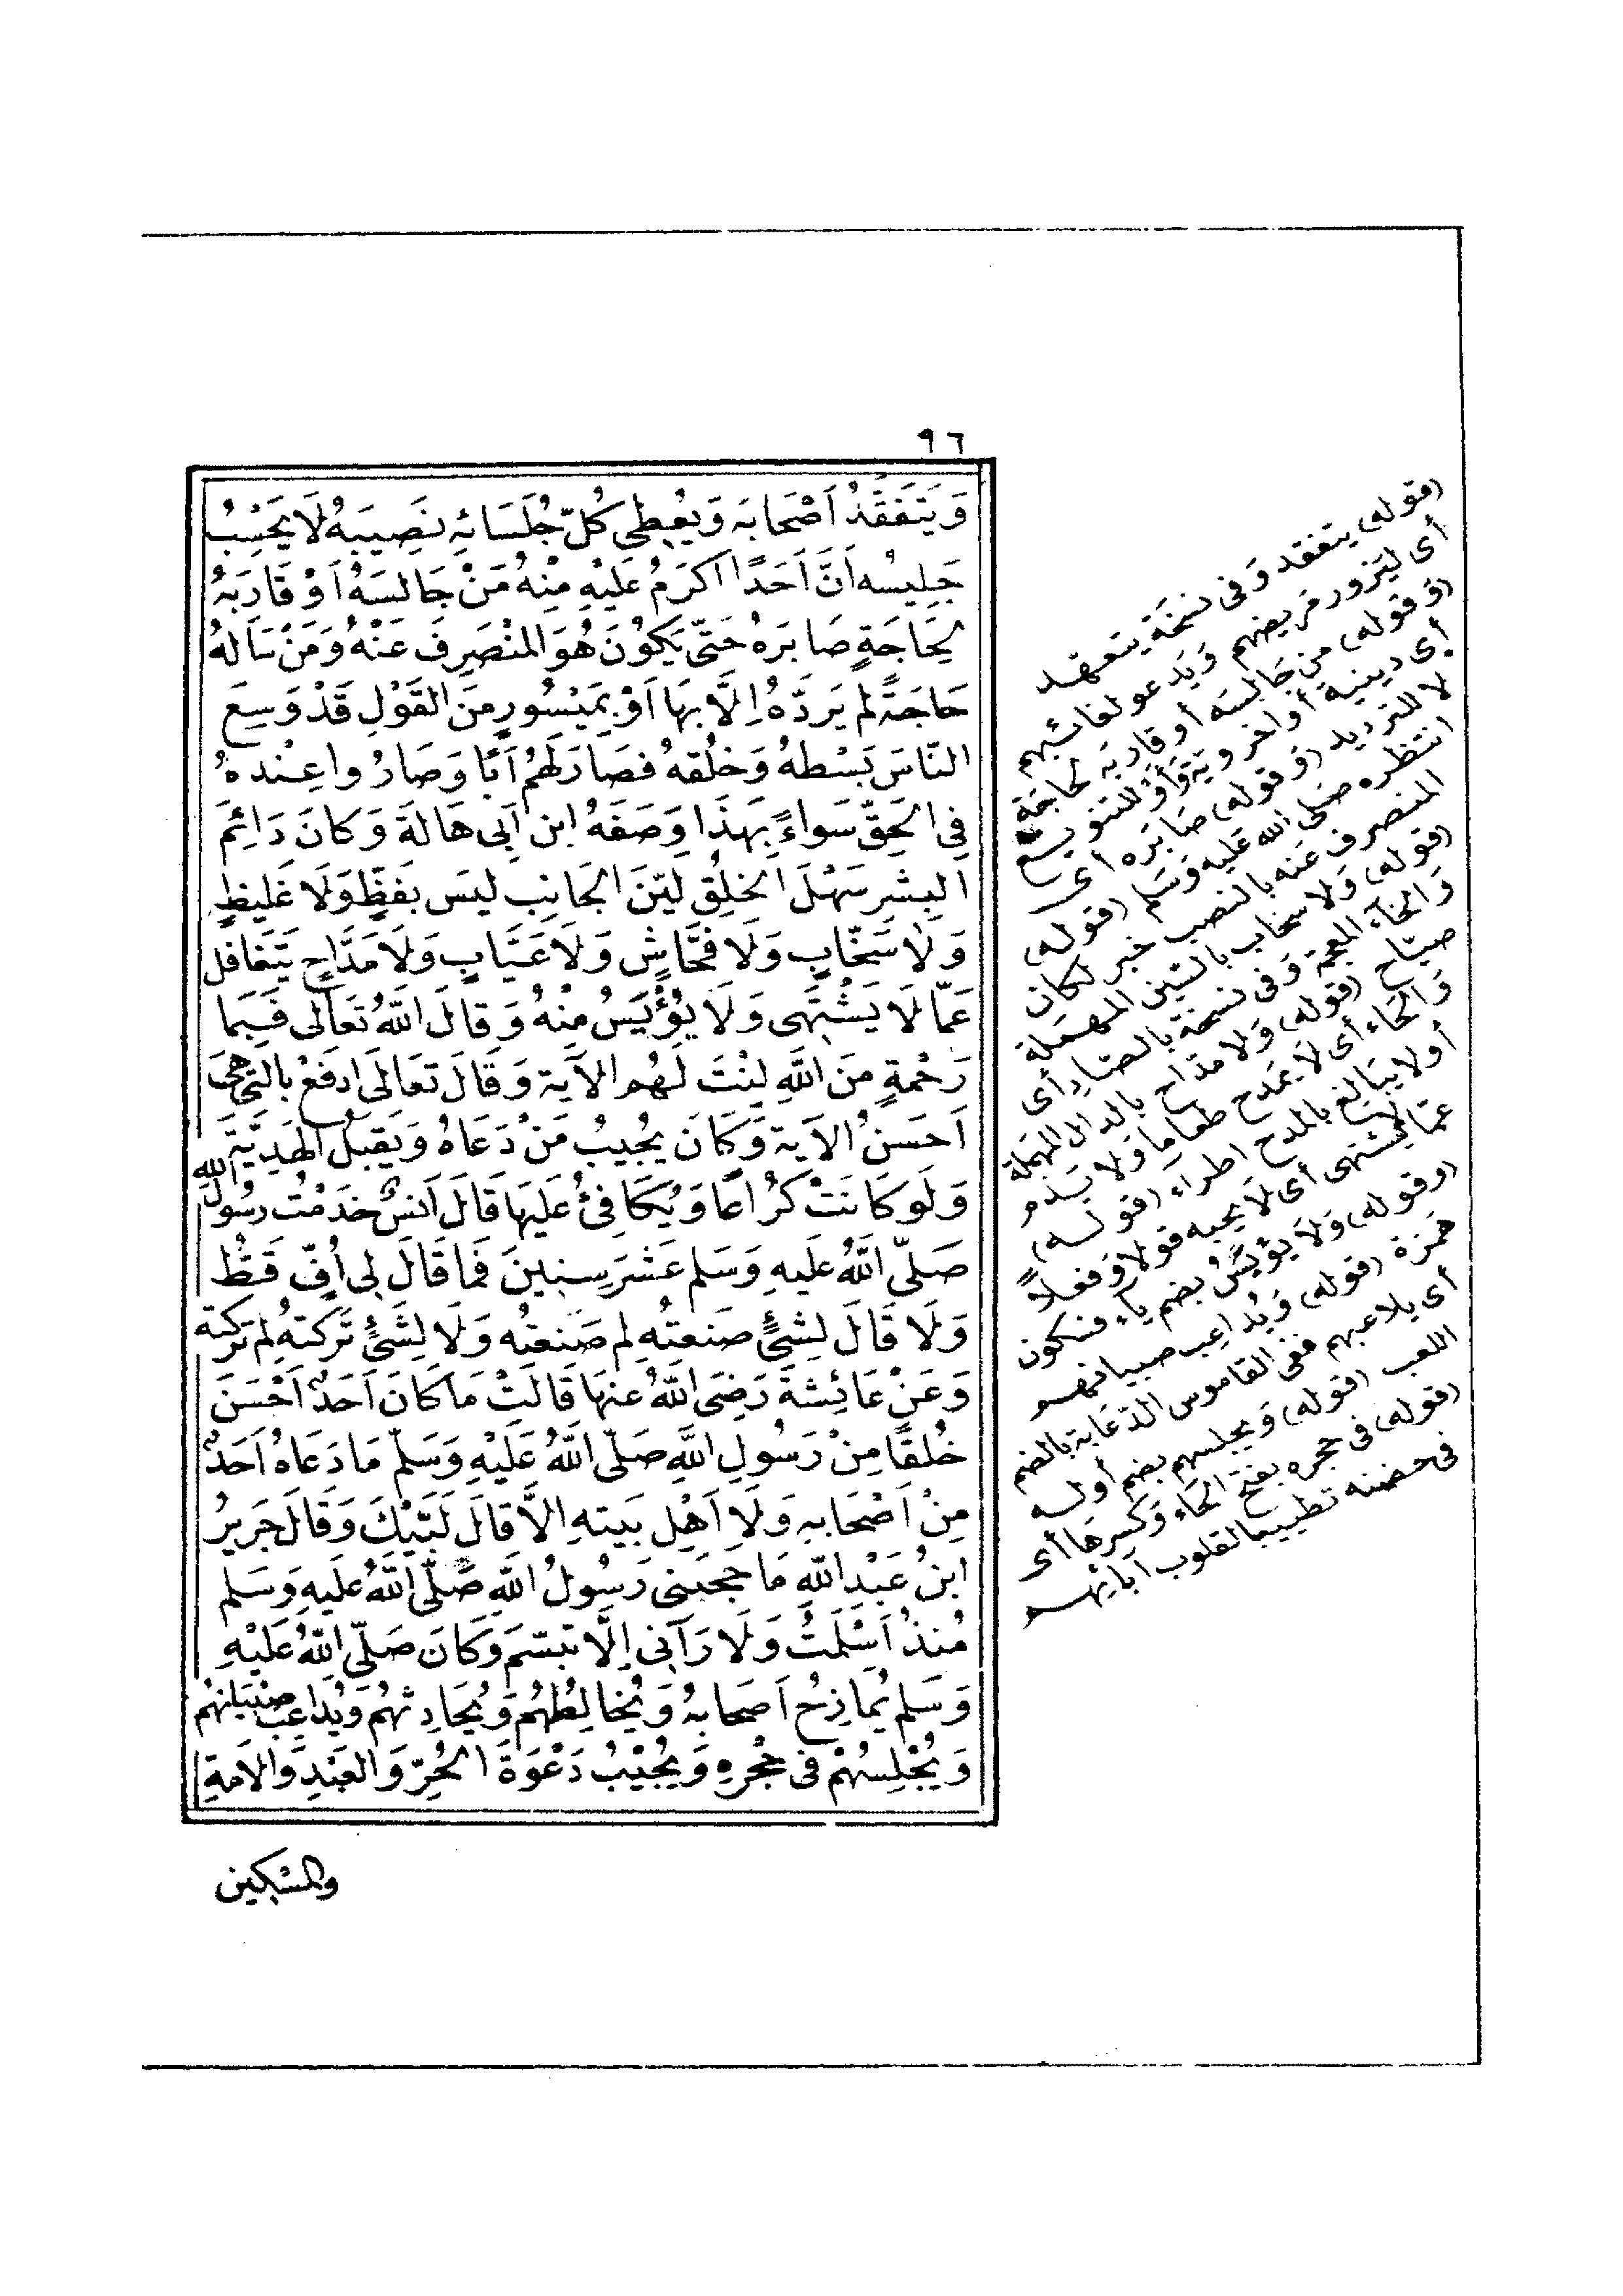 ٩٦
وَيَتَفَقَّدُ اَصْحَابَهُ وَيُعْطِى كُلَّ جُلَسَائِهِ نَصِيبَهُ لَا يَحْسِبُ
جَلِيسُه اَنَّ اَحَدًا اَكرَمُ عَلَيْهِ مِنْهُ مَنْ جَالسَهُ اَوْ قَارَبَهُ
لِحَاجَةٍ صَابَرَهُ حَتّى يَكُونَ هُوَ المُنْصَرِفَ عَنْهُ وَمَنْ سَاَلهُ
حَاجَةً لم يَردّهُ اِلَّا بِهَا اَوْ بِمَيْسُورٍ مِنَ القَوْلِ قَدْ وَسِعَ
النّاسَ بَسْطهُ وَخُلقهُ فصَارَ لَهُمْ اَبًا وَصَارُوا عِنْدهُ
فِى الحَقّ سَواءً بِهَذَا وَصَفَهُ ابن اَبِى هَالةَ وَكانَ دَائِمَ
البِشرِ سَهْلَ الخلُقِ ليّنَ الجَانِبِ ليسَ بفظٍّ وَلَا غَليظٍ
وَلَا سَخّابٍ وَلَا فحَّاشٍ وَلَا عَيَّابٍ وَلَا مَدَّاحٍ يَتَغَافل
عَمّا لَا يَشْتَهى وَلَا يُؤْيَسُ مِنْهُ وَقالَ اللّهُ تَعَالى فَبِمَا
رَحْمةٍ مِنَ اللَّهِ لِنْتَ لَهُم الآيَة وَقَالَ تعَالَى ادفَعْ بالتى هِىَ
اَحسَنُ الآيَة وَكَانَ يُجِيبُ مَنْ دَعَاهُ وَيَقبَلُ الهَدِيَّةَ
وَلَو كَانَتْ كُرَاعًا وَيُكَافِئُ عَلَيهَا قَالَ اَنسٌ خدَمْتُ رسُولَ الله
صَلّى اللَّهُ عَلَيهِ وَسَلم عَشرَ سِنِينَ فَمَا قَالَ لِى اُفٍّ قَطُّ
وَلَا قَالَ لِشَئٍ صنعتُه لِم صَنعتُه وَلَا لِشَئٍ تَركتهُ لِمَ تركته
وَعَنْ عَائِشةَ رَضِىَ اللَّهُ عنهَا قَالَتْ مَا كَانَ اَحَدٌ اَحْسَنَ
خُلقًا مِنْ رَسُولِ اللَّهِ صَلّى اللَّهُ عَلَيْهِ وَسَلّم مَا دَعَاهُ اَحَدٌ
مِنْ اَصْحَابِهِ وَلَا اَهْلِ بَيتهِ اِلَّا قالَ لَبّيْكَ وَقَالَ جَرِيرُ
ابنُ عَبْدِ اللّهِ مَا حجَبَنِى رَسُولُ اللَّهِ صَلّى اللَّهُ عَلَيهِ وَسَلم
مُنذُ اَسْلَمْتُ وَلَا رَآنِى اِلَّا تبَسّمَ وَكَانَ صَلّى اللّهُ عَلَيْهِ
وَسَلم يُمَازِحُ اَصحَابهُ وَيُخَالِطُهُمْ وَيُحَادِثهُمْ وَيُدَاعِبُ صِبْيَانهُم
وَيُجْلِسُهُمْ فِى حجْرِهِ وَيُجِيْبُ دَعْوَةَ الحُرِّ وَالعَبْدِ وَالاَمَةِ
والمسْكِين
(قوله) يتفقد وَفى نسخَة يتعهّد
أى ليَزور مريضهم وَيَدعو لغائبهم
(وَقوله) من جَالسَه أو قاربَه لحَاجَة
أى دينية أو اخروية وَأَوْ للتنويع
لا للترديد (وَقوله) صَابَره أى
انتظره صَلى الله عَليه وَسَلم (قوله)
المنصرف عَنه بالنصب خبر لكان
(قوله) وَلا سخاب بالسّين المهمَلة
وَالخاء المعجمة وَفى نسخة بالصّاد أى
صيّاح (قوله) وَلا مدّاح بالدال المهملة
وَالحاء أى لا يمدح طعاما وَلا يذم
أو لا يبَالغ بالمدح اطراء (قولـه)
عمّا لا يشتهى أى لا يحبه قولا وَفعلاً
(وقوله) وَلَا يؤيَسُ بضم ياء فسكون
همزة (قوله) وَيُداعِب صبيانهم
أى يلاعبهم ففى القاموس الدّعَابة بالضم
اللعب (قوله) وَيجلسهم بضم أولـه
(قوله) فى حجره بفتح الحَاء وَكسرهَا أى
فى حضنه تطييبا لقلوب آبائهم